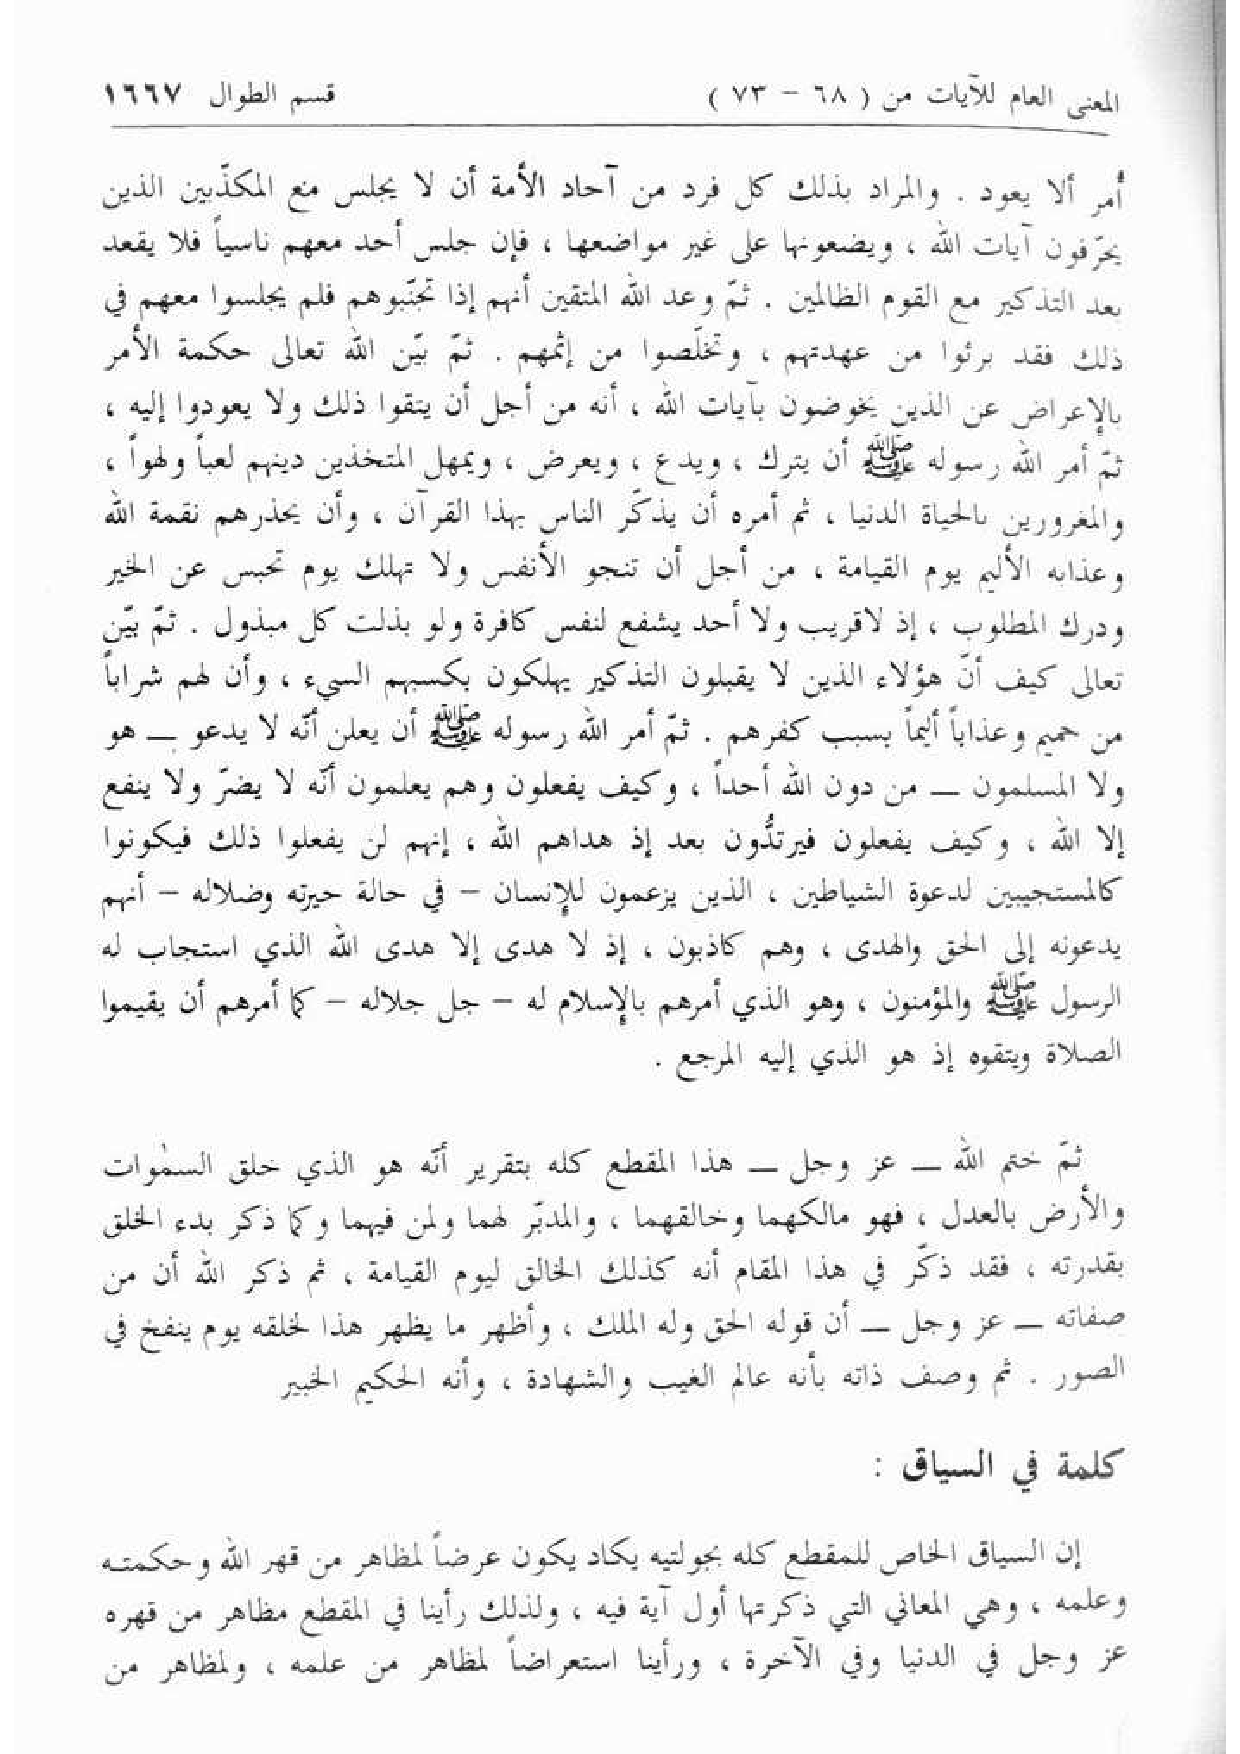 المعنى العام للآيات من ( ٦٨ - ٧٣ ) قسم الطوال ١٦٦٧
أُمر ألا يعود . والمراد بذلك كل فرد من آحاد الأمة أن لا يجلس مع المكذّبين الذين
يحرّفون آيات الله ، ويضعونها على غير مواضعها ، فإن جلس أحد معهم ناسياً فلا يقعد
بعد التذكير مع القوم الظالمين . ثمّ وعد الله المتقين أنهم إذا تجنّبوهم فلم يجلسوا معهم في
ذلك فقد برئوا من عهدتهم ، وتخلّصوا من إثمهم . ثمّ بيّن الله تعالى حكمة الأمر
بالإعراض عن الذين يخوضون بآيات الله ، أنه من أجل أن يتقوا ذلك ولا يعودوا إليه ،
ثمّ أمر الله رسوله ﷺ أن يترك ، ويدع ، ويعرض ، ويمهل المتخذين دينهم لعباً ولهواً ،
والمغرورين بالحياة الدنيا ، ثم أمره أن يذكّر الناس بهذا القرآن ، وأن يحذرهم نقمة الله
وعذابه الأليم يوم القيامة ، من أجل أن تنجو الأنفس ولا تهلك يوم تحبس عن الخير
ودرك المطلوب ، إذ لاقريب ولا أحد يشفع لنفس كافرة ولو بذلت كل مبذول . ثمّ بيّن
تعالى كيف أنّ هؤلاء الذين لا يقبلون التذكير يهلكون بكسبهم السيء ، وأن لهم شراباً
من حميم وعذاباً أليماً بسبب كفرهم . ثمّ أمر الله رسوله ﷺ أن يعلن أنّه لا يدعو ــ هو
ولا المسلمون ــ من دون الله أحداً ، وكيف يفعلون وهم يعلمون أنّه لا يضرّ ولا ينفع
إلا الله ، وكيف يفعلون فيرتدُّون بعد إذ هداهم الله ، إنهم لن يفعلوا ذلك فيكونوا
كالمستجيبين لدعوة الشياطين ، الذين يزعمون للإنسان - في حالة حيرته وضلاله - أنهم
يدعونه إلى الحق والهدى ، وهم كاذبون ، إذ لا هدى إلا هدى الله الذي استجاب له
الرسول ﷺ والمؤمنون ، وهو الذي أمرهم بالإسلام له - جل جلاله - كما أمرهم أن يقيموا
الصلاة ويتقوه إذ هو الذي إليه المرجع .
ثمّ ختم الله ــ عز وجل ــ هذا المقطع كله بتقرير أنّه هو الذي خلق السمٰوات
والأرض بالعدل ، فهو مالكهما وخالقهما ، والمدبّر لهما ولمن فيهما وكما ذكر بدء الخلق
بقدرته ، فقد ذكّر في هذا المقام أنه كذلك الخالق ليوم القيامة ، ثم ذكر الله أن من
صفاته ــ عز وجل ــ أن قوله الحق وله الملك ، وأظهر ما يظهر هذا لخلقه يوم ينفخ في
الصور . ثم وصف ذاته بأنه عالم الغيب والشهادة ، وأنه الحكيم الخبير
كلمة في السياق :
إن السياق الخاص للمقطع كله بجولتيه يكاد يكون عرضاً لمظاهر من قهر الله وحكمته
وعلمه ، وهي المعاني التي ذكرتها أول آية فيه ، ولذلك رأينا في المقطع مظاهر من قهره
عز وجل في الدنيا وفي الآخرة ، ورأينا استعراضاً لمظاهر من علمه ، ولمظاهر من